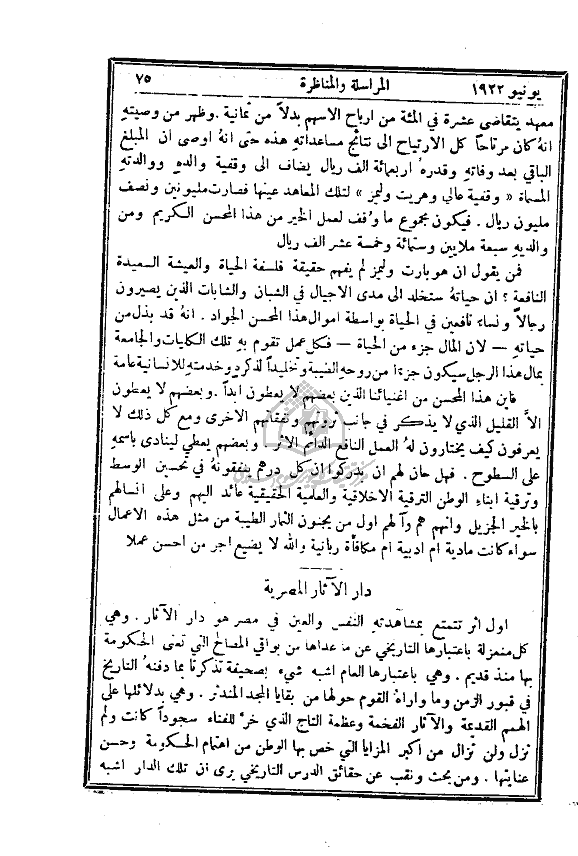 يونيو ١٩٢٢
المراسلة والمناظرة
٧٥
معهد يتقاضى عشرة في المئة من ارباح الاسهم بدلاً من ثمانية . وظهر من وصيتهِ
انهُ كان مرتاحاً كل الارتياح الى نتائج مساعداتهِ هذه حتى انهُ اوصى ان المبلغ
الباقي بعد وفاتهِ وقدرهُ اربعمائة الف ريال يضاف الى وقفية والدهِ ووالدتهِ
المسماة « وقفية عالي وهريت وليمز » لتلك المعاهد عينها فصارت مليونين ونصف
مليون ريال . فيكون مجموع ما وُقف لعمل الخير من هذا المحسن الكريم ومن
والديهِ سبعة ملايين وستمائة وخمسة عشر الف ريال
فمن يقول ان هوبارت وليمز لم يفهم حقيقة فلسفة الحياة والعيشة السعيدة
النافعة ؟ ان حياتهُ ستخلد الى مدى الاجيال في الشبان والشابات الذين يصيرون
رجالاً ونساء نافعين في الحياة بواسطة اموال هذا المحسن الجواد . انهُ قد بذل من
حياتهِ — لان المال جزء من الحياة — فكل عمل تقوم بهِ تلك الكليات والجامعة
بمال هذا الرجل سيكون جزءًا من روحهِ الطيبة وتخليداً لذكره وخدمته للانسانية عامة
فاين هذا المحسن من اغنيائنا الذين بعضهم لا يعطون ابداً . وبعضهم لا يعطون
الاَّ القليل الذي لا يذكر في جانب ثروتهم ونفقاتهم الاخرى ومع كل ذلك لا
يعرفون كيف يختارون لهُ العمل النافع الدائم الاثر . وبعضهم يعطي لينادى باسمهِ
على السطوح . فهل حان لهم ان يدركوا ان كل درهم ينفقونهُ في تحسين الوسط
وترقية ابناء الوطن الترقية الاخلاقية والعلمية الحقيقية عائد اليهم وعلى انسالهم
بالخير الجزيل وانهم هم وآلهم اول من يجنون الثمار الطيبة من مثل هذه الاعمال
سواء كانت مادية ام ادبية ام مكافأة ربانية والله لا يضيع اجر من احسن عملا
دار الآثار المصرية
اول اثر تتمتع بمشاهدتهِ النفس والعين في مصر هو دار الآثار . وهي
كل منعزلة باعتبارها التاريخي عن ما عداها من بواقي المصالح التي تعنى الحكومة
بها منذ قديم . وهي باعتبارها العام اشبه شيء بصحيفة تذكرنا بما دفنهُ التاريخ
في قبور الزمن وما واراهُ القوم حولها من بقايا المجد المندثر . وهي بدلائلها على
الهمم القديمة والآثار الفخمة وعظمة التاج الذي خرَّ للفناء سجوداً كانت ولم
تزل ولن تزال من اكبر المزايا التي خص بها الوطن من اهتمام الحكومة وحسن
عنايتها . ومن بحث ونقب عن حقائق الدرس التاريخي يرى ان تلك الدار اشبه